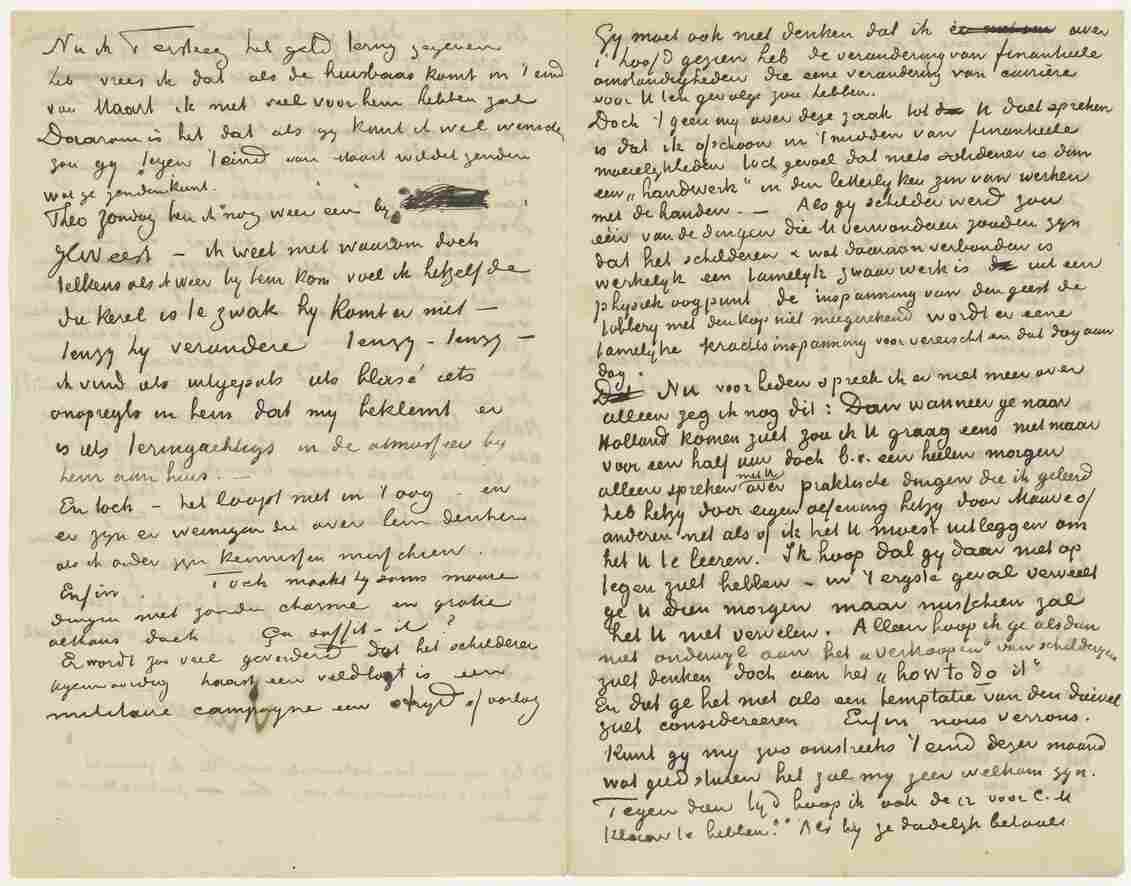 Nu ik Tersteeg het geld terug gegeven
heb vrees ik dat als de huisbaas komt in 't eind
van Maart ik niet veel voor hem hebben zal
Daarom is het dat als gy kunt ik wel wensch
zou gy tegen 't eind van Maart wildet zenden
wat ge zenden kunt.
Theo zondag ben ik nog weer een by
HW eest – ik weet niet waarom doch
telkens als ik weer by hem kom voel ik hetzelfde
die kerel is te zwak hy komt er niet –
tenzy hy verandere tenzy – tenzy –
ik vind iets uitgepats iets blasé iets
onopregts in hem dat my beklemt er
is iets teringachtigs in de atmosfeer by
hem aan huis. –
En toch – het loopt niet in 't oog – en
er zyn er weinigen die over hem denken
als ik onder zyn kennissen misschien.
Enfin. Toch maakt hy soms mooie
dingen niet zonder charme en gratie
althans doch Ça suffit-il?
Er wordt zoo veel gevorderd dat het schilderen
tegenwoordig haast een veldtogt is een
militaire campagne een strijd of oorlog
Gy moet ook niet denken dat ik over
't hoofd gezien heb de verandering van finantieele
omstandigheden die eene verandering van carrière
voor U ten gevolge zou hebben.
Doch 't geen my over deze zaak tot U doet spreken
is dat ik ofschoon in 't midden van finantieele
moeielykheden toch gevoel dat niets solieder is dan
een „handwerk" in den letterlyken zin van werken
met de handen. – Als gy schilder werd zou
een van de dingen die U verwonderen zouden zyn
dat het schilderen & wat daaraan verbonden is
werkelyk een tamelyk zwaar werk is uit een
physiek oogpunt de inspanning van den geest de
tobbery met den kop niet meegerekend wordt er eene
tamelyke krachtsinspanning voor vereischt en dat dag aan
dag.
Nu voor heden spreek ik er niet meer over
alleen zeg ik nog dit: Dan wanneer ge naar
Holland komen zult zou ik U graag eens niet maar
voor een half uur doch b.v. een heelen morgen
alleen spreken met U over praktische dingen die ik geleerd
heb hetzy door eigen oefening hetzy door Mauve of
anderen net als of ik het U moest uitleggen om
het U te leeren. Ik hoop dat gy daar niet op
tegen zult hebben – in 't ergste geval verveelt
ge U dien morgen maar misschien zal
het U niet vervelen. Alleen hoop ik ge alsdan
niet onderwyl aan het „verkoopen" van schilderyen
zult denken doch aan het „how to do it"
En dat ge het niet als een temptatie van den duivel
zult considereeren Enfin nous verrons.
Kunt gy my zoo omstreeks 't eind dezer maand
wat geld sturen het zal my zeer welkom zyn.
Tegen dien tyd hoop ik ook de 12 voor C.M
klaar te hebben. Als hy ze dadelyk betaalt